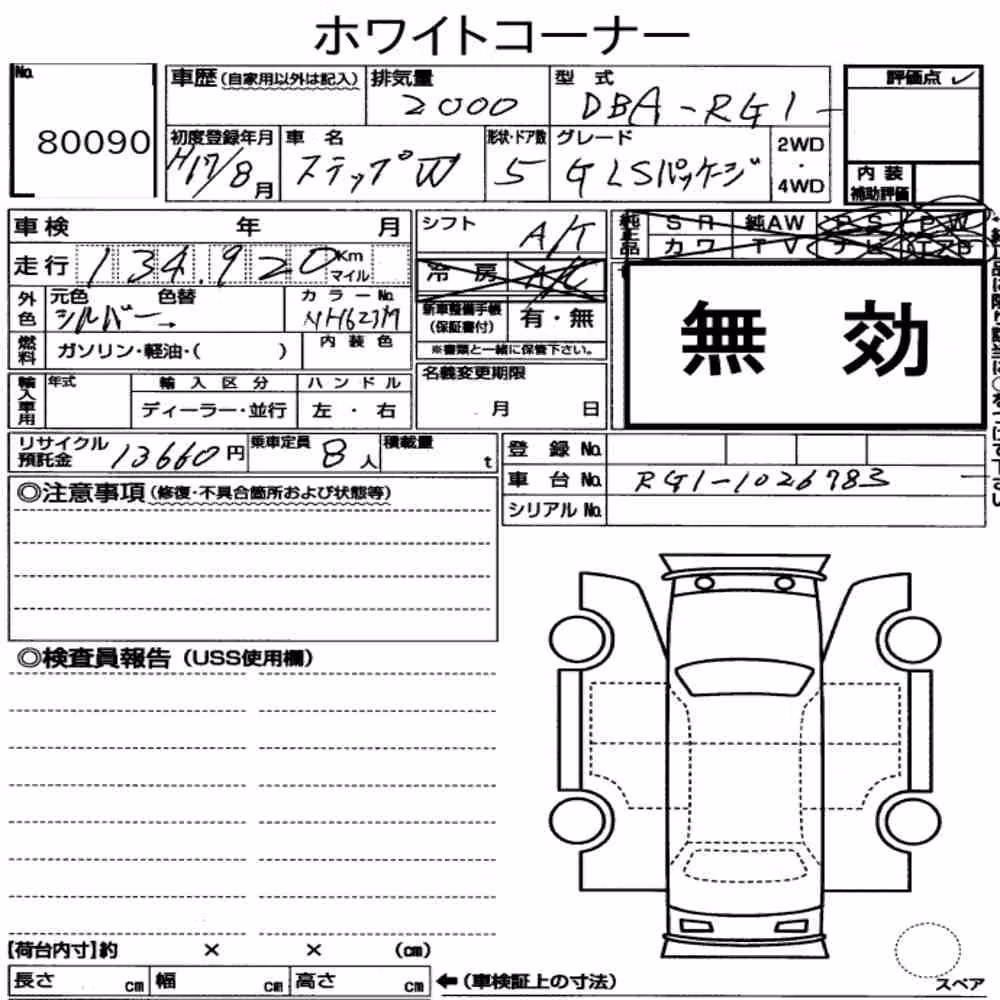 ホワイトコーナー
No. 80090
車歴(自家用以外は記入) 排気量 2000 型式 DBA-RG1
評価点
初度登録年月 H17/8月 車名 ステップW 形状・ドア数 5 グレード G LSパッケージ 2WD・4WD
内装補助評価
車検 年 月 シフト A/T
純正品 SR 純AW PS PW
カワ TV ナビ エアB
走行 134,920 Km マイル
冷房 A/C
外色 元色 シルバー 色替 カラーNo. NH623M
新車整備手帳(保証書付) 有・無
※書類と一緒に保管下さい。
無効
燃料 ガソリン・軽油・( ) 内装色
輸入車用 年式 輸入区分 ディーラー・並行 ハンドル 左・右
名義変更期限 月 日
リサイクル預託金 13660円 乗車定員 8人 積載量 t
登録No.
車台No. RG1-1026783
シリアルNo.
◎注意事項(修復・不具合箇所および状態等)
◎検査員報告(USS使用欄)
【荷台内寸】約 × × (cm)
長さ cm 幅 cm 高さ cm ←(車検証上の寸法)
スペア